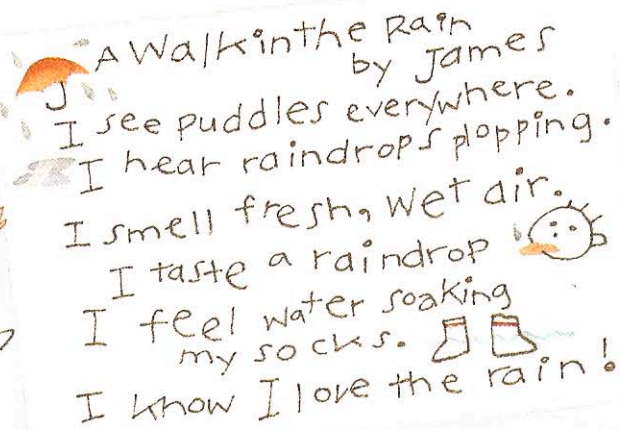 A Walk in the Rain
by James
I see puddles everywhere.
I hear raindrops plopping.
I smell fresh, wet air.
I taste a raindrop
I feel water soaking
my socks.
I know I love the rain!